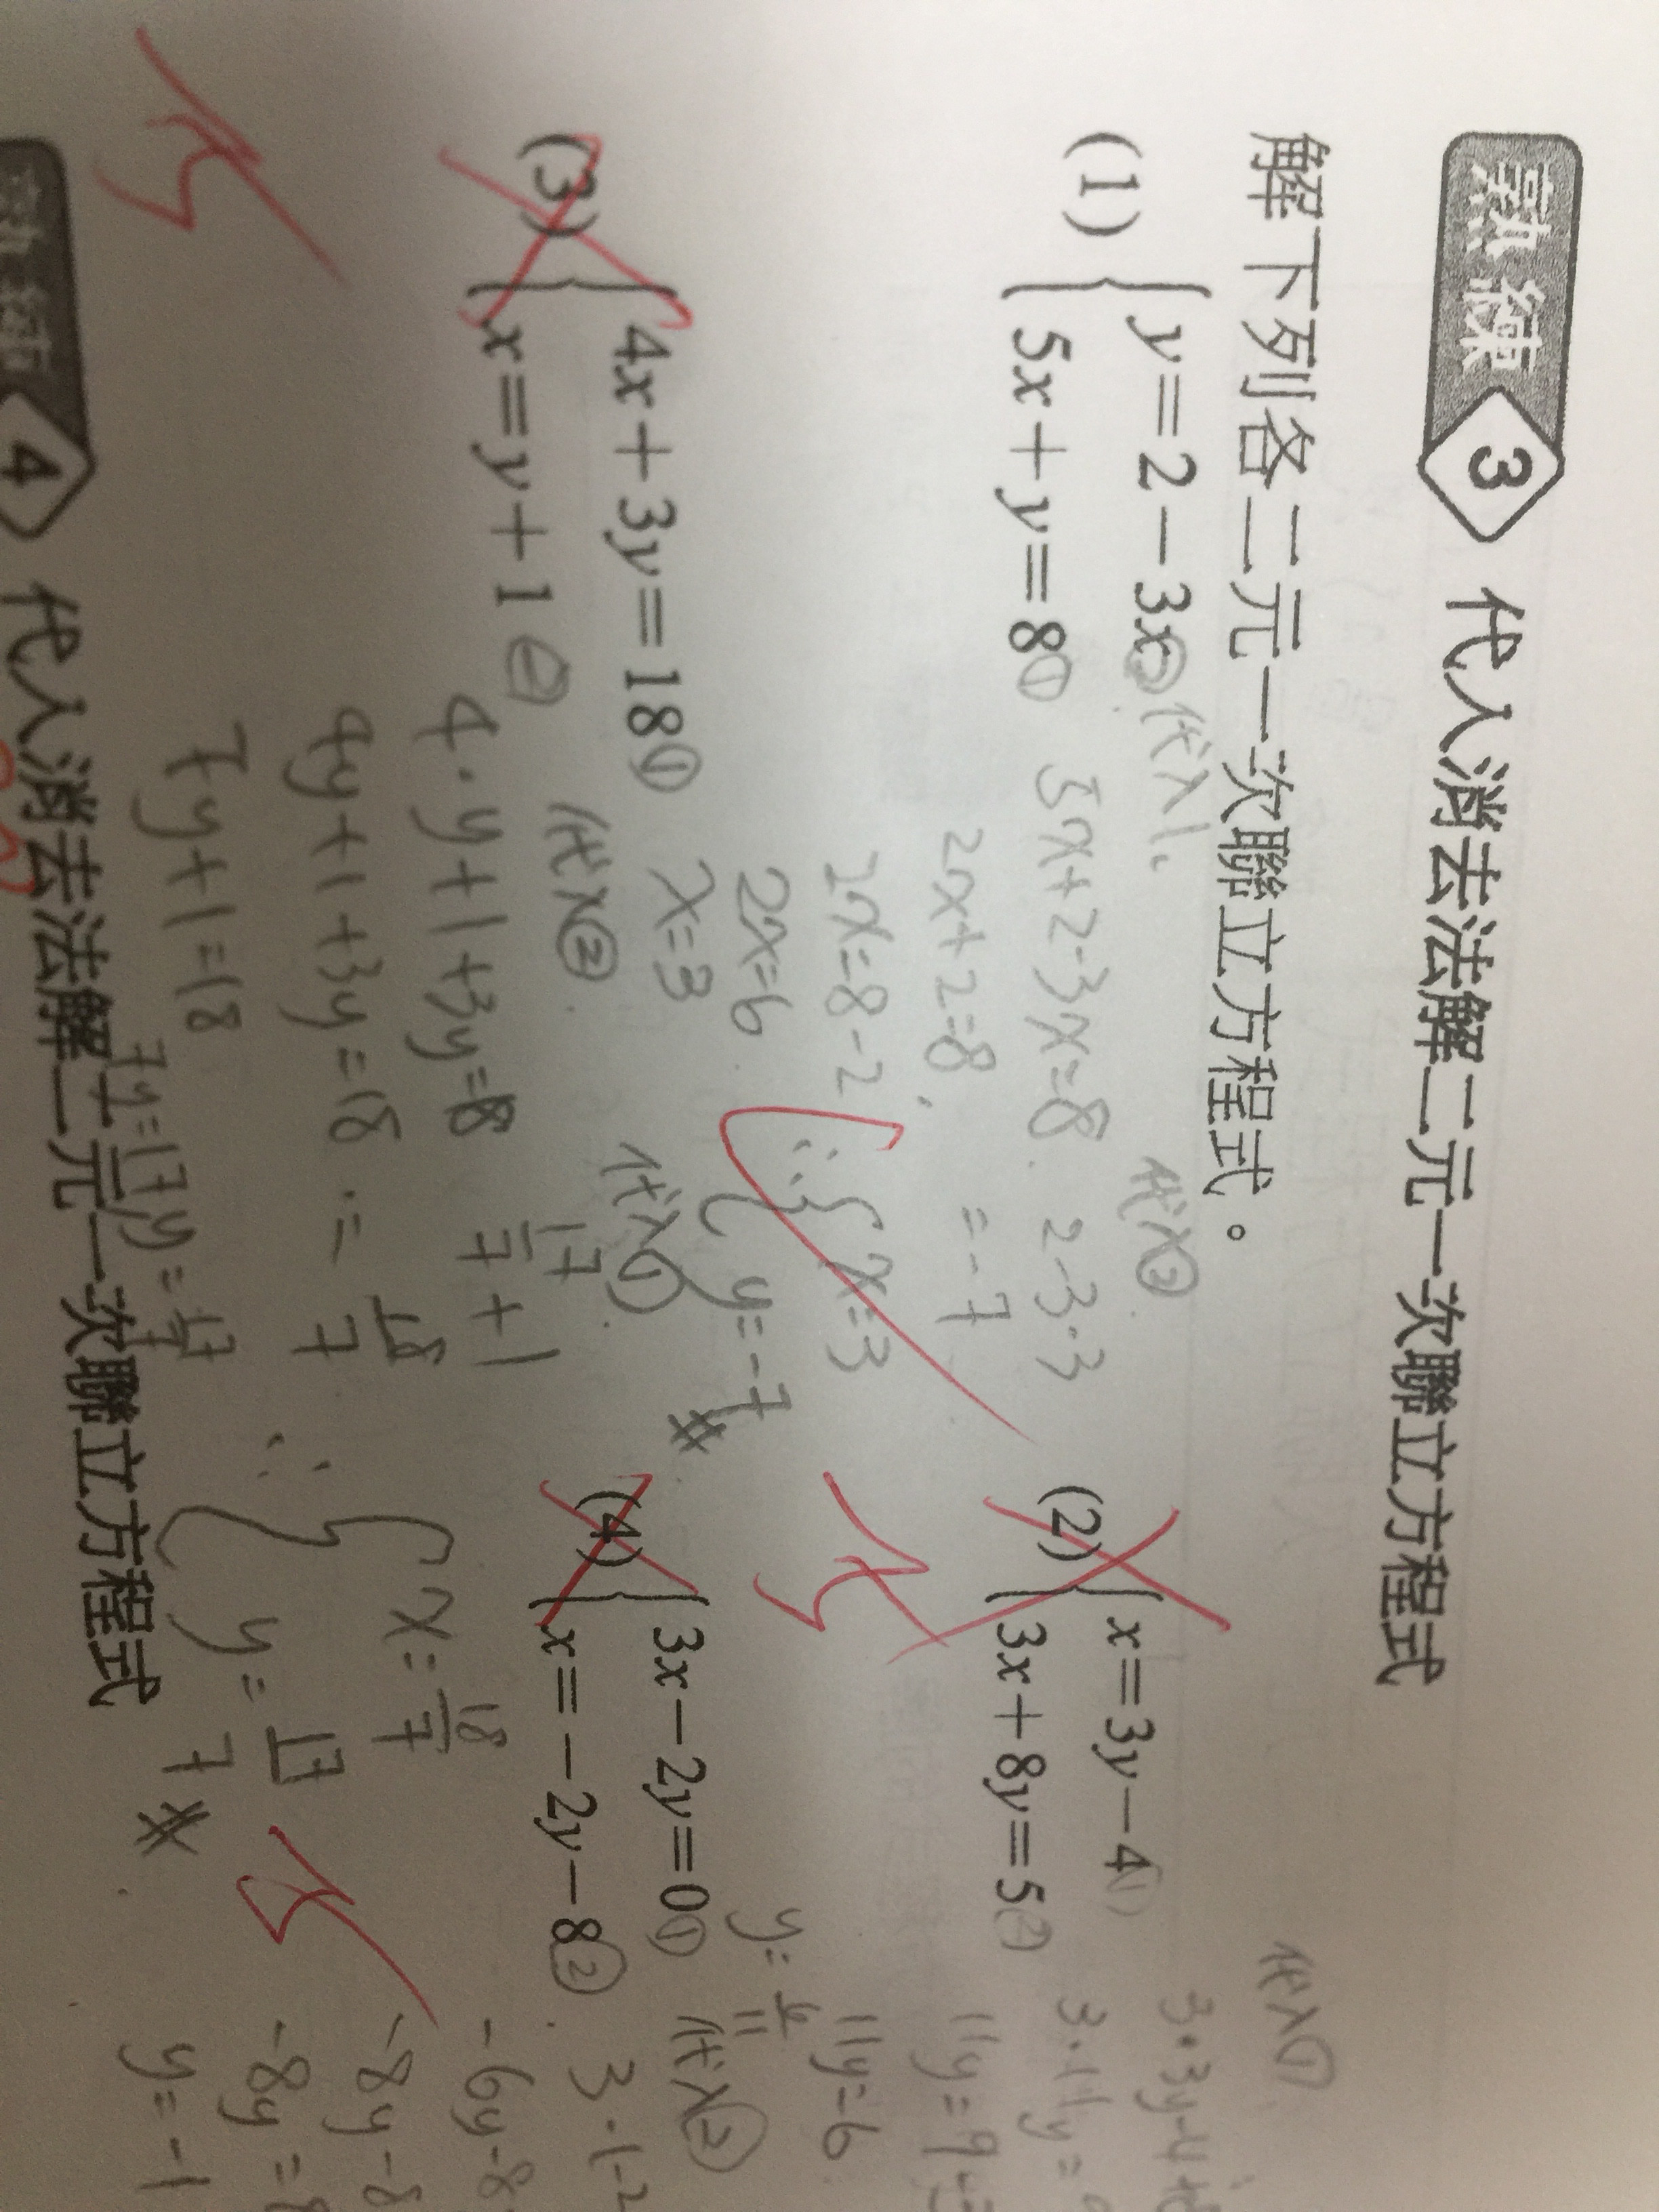 熟練 3 代入消去法解二元一次聯立方程式
解下列各二元一次聯立方程式。
(1) { y=2-3x② 代入1.
5x+y=8①
5x+2-3x=8
2x+2=8
2x=8-2
2x=6
x=3
代入②
2-3·3
=-7
∴ { x=3
y=-7
(2) { x=3y-4①
3x+8y=5②
代入①
11y=6
y=6/11
(3) { 4x+3y=18①
x=y+1②
代入②
4·y+1+3y=18
4y+1+3y=18
7y+1=18
7y=17
y=17/7
代入①
17/7+1
=18/7
∴ { x=18/7
y=17/7
(4) { 3x-2y=0①
x=-2y-8②
代入②
-8y=8
y=-1
4 代入消去法解二元一次聯立方程式